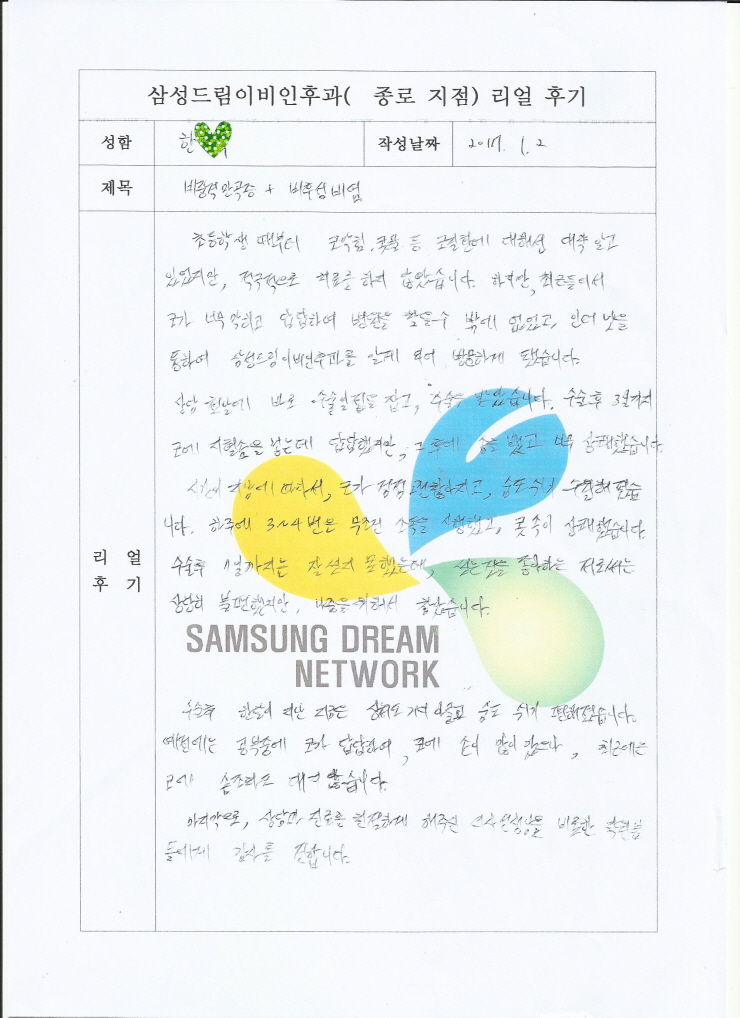 삼성드림이비인후과( 종로 지점) 리얼 후기
성함 한
작성날짜 2017. 1. 2
제목 비중격만곡증 + 비후성비염
리 얼
후 기
초등학생 때부터 코막힘, 콧물 등 코질환에 대해선 대략 알고
있었지만, 적극적으로 치료를 하지 않았습니다. 하지만, 최근들어서
코가 너무 막히고 답답하여 병원을 찾을수 밖에 없었고, 인터넷을
통하여 삼성드림이비인후과를 알게 되어 방문하게 됐습니다.
상담 첫날에 바로 수술일정을 잡고, 수술을 받았습니다. 수술후 3일까지
코에 지혈솜을 넣는데 답답했지만, 그 후에 솜을 뺐고 너무 상쾌했습니다.
시간이 지남에 따라서, 코가 점점 편함해지고, 숨도 쉬기 수월해졌습
니다. 하주에 3~4번은 무조건 소독을 시행했고, 콧속이 상쾌했습니다
수술후 까지는 잘 씻지 못했는데, 씻는것을 좋아하는 저로써는
상당히 불편했지만, 나중을 위해서 참았습니다.
SAMSUNG DREAM
NETWORK
수술후 한달이 지난 지금은 상처도 거의 아물고 숨도 쉬기 편해졌습니다.
예전에는 공부중에 코가 답답하여, 코에 손이 많이 갔으나, 최근에는
코에 손조차도 대지 않습니다.
마지막으로, 상담과 진료를 친절하게 해주신 비롯한 직원분
들에게 감사를 전합니다.